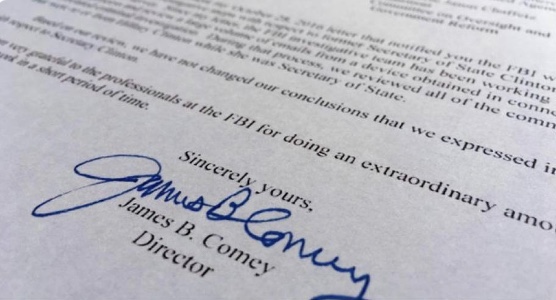 Jason Chaffetz
Committee on Oversight and
Government Reform
October 28, 2016 letter that notified you the FBI
with respect to former Secretary of State Clinton
the FBI investigative team has been working
emails from a device obtained in connec
During that process, we reviewed all of the comm
Hillary Clinton while she was Secretary of State.
Based on our review, we have not changed our conclusions that we expressed in
respect to Secretary Clinton.
very grateful to the professionals at the FBI for doing an extraordinary amo
work in a short period of time.
Sincerely yours,
James B Comey
James B. Comey
Director